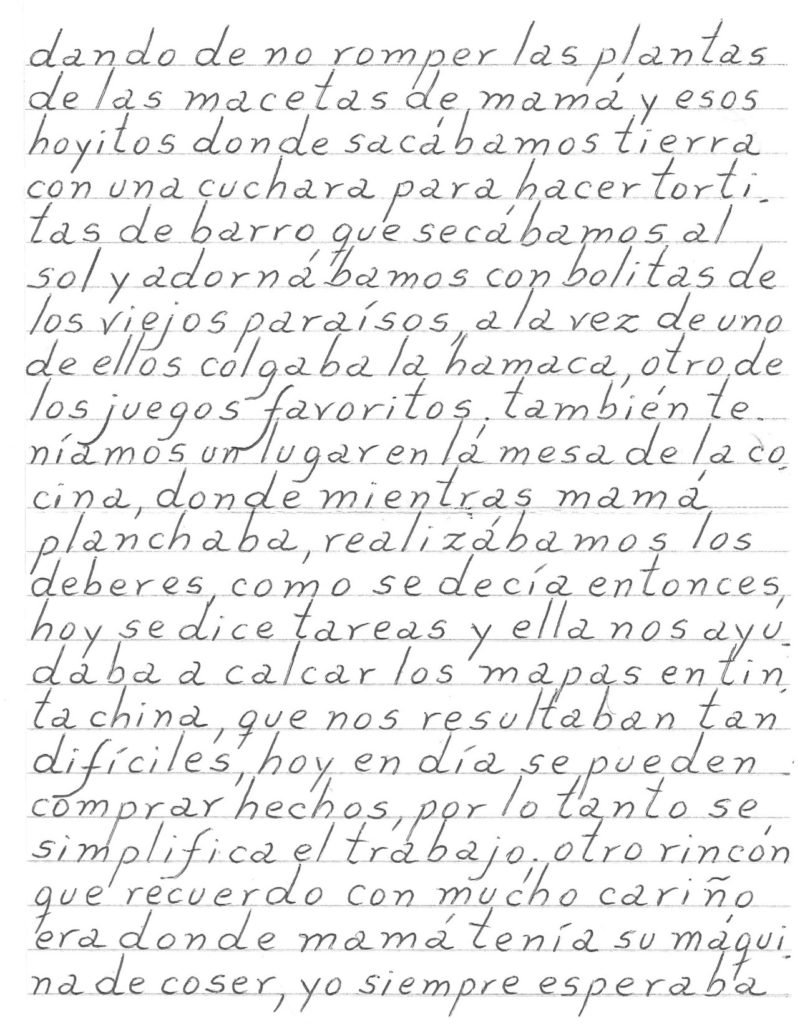 dando de no romper las plantas
de las macetas de mamá y esos
hoyitos donde sacábamos tierra
con una cuchara para hacer torti-
tas de barro que secábamos al
sol y adornábamos con bolitas de
los viejos paraísos, a la vez de uno
de ellos colgaba la hamaca, otro de
los juegos favoritos; también te-
níamos un lugar en la mesa de la co-
cina, donde mientras mamá
planchaba, realizábamos los
deberes, como se decía entonces,
hoy se dice tareas y ella nos ayu-
daba a calcar los mapas en tin
ta china, que nos resultaban tan
difíciles, hoy en día se pueden
comprar hechos, por lo tanto se
simplifica el trabajo; otro rincón
que recuerdo con mucho cariño
era donde mamá tenía su máqui-
na de coser, yo siempre esperaba